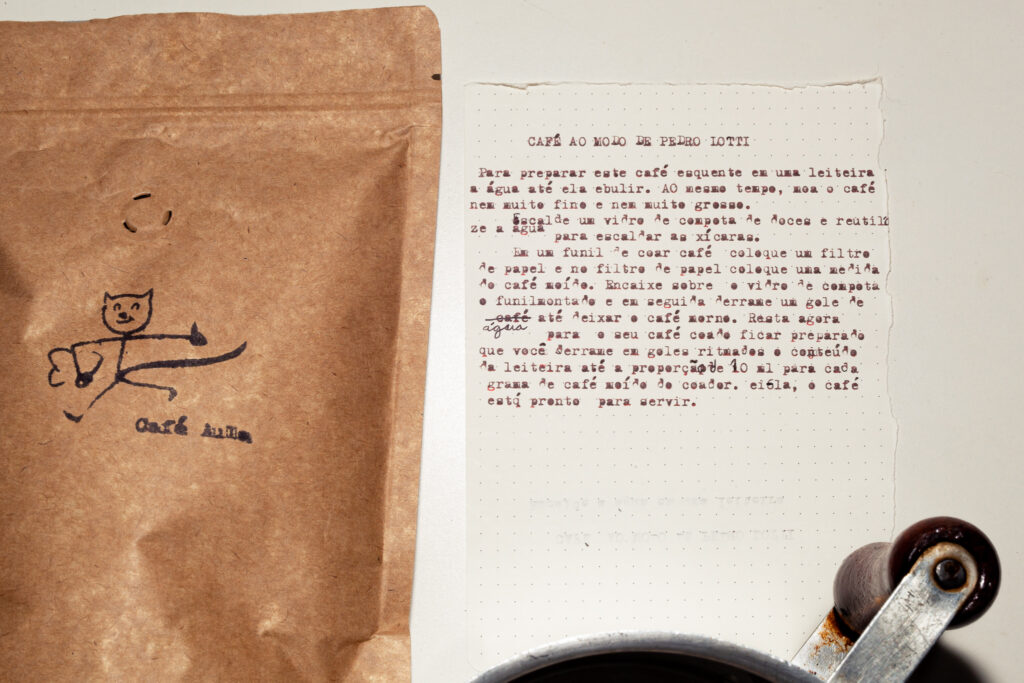 Café Aula
CAFÉ AO MODO DE PEDRO IOTTI
Para preparar este café esquente em uma leiteira
a água até ela ebulir. AO mesmo tempo, moa o café
nem muito fino e nem muito grosso.
Escalde um vidro de compota de doces e reutili
ze a água para escaldar as xícaras.
Em um funil de coar café coloque um filtro
de papel e no filtro de papel coloque uma medida
do café moído. Encaixe sobre o vidro de compota
o funilmontado e em seguida derrame um gole de
café até deixar o café morno. Resta agora
água
para o seu café coado ficar preparado
que você derrame em goles ritmados o conteúdo
da leiteira até a proporção de 10 ml para cada
grama de café moído do coador. eiéla, o café
está pronto para servir.